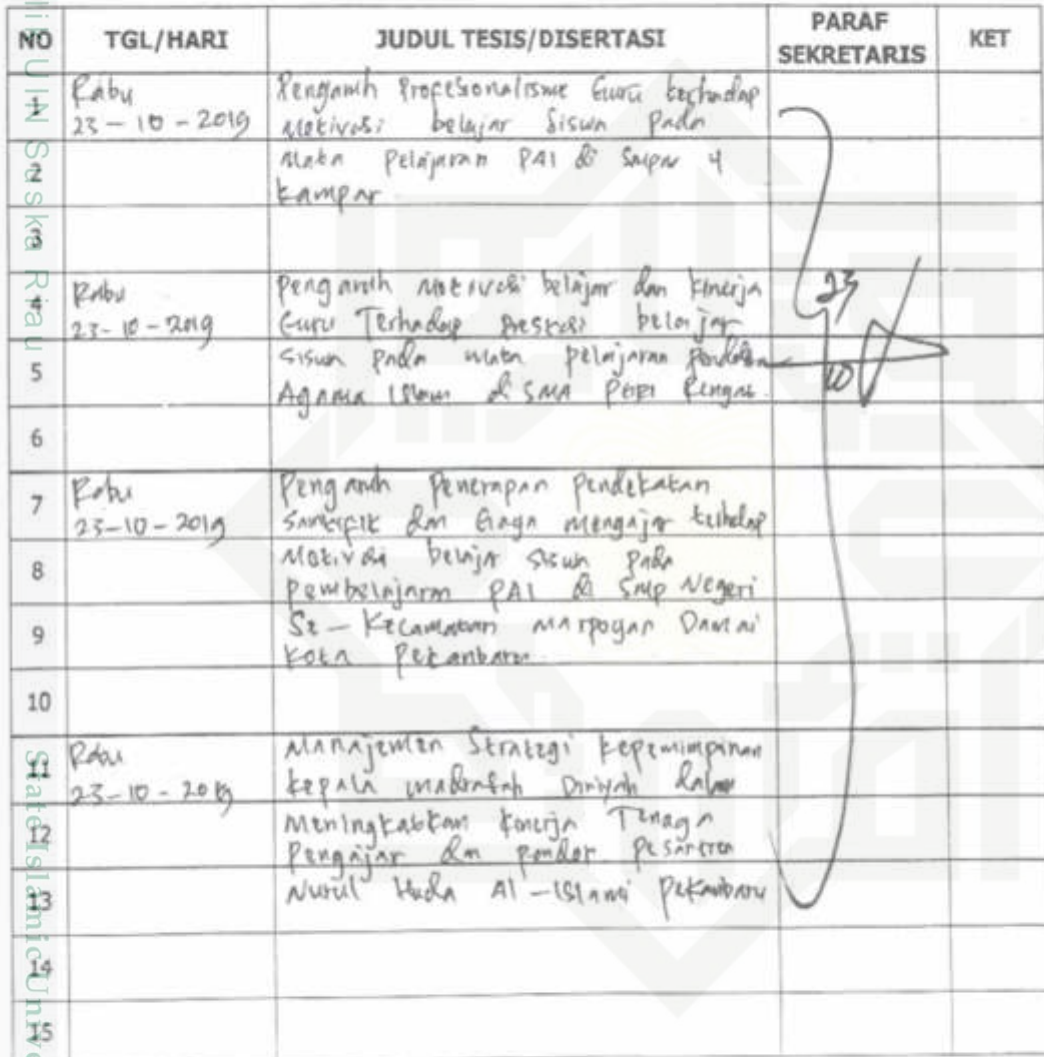 NO TGL/HARI JUDUL TESIS/DISERTASI PARAF SEKRETARIS KET
1 Rabu Pengaruh Profesionalisme Guru terhadap
23-10-2019 Motivasi belajar Siswa Pada
2 Mata Pelajaran PAI di
Kampar
3
4 Rabu Pengaruh Motivasi belajar dan Kinerja
23-10-2019 Guru Terhadap Prestasi belajar
5 Siswa Pada Mata Pelajaran
Agama Islam di SMA PGRI Rengat.
23
10
6
7 Rabu Pengaruh Penerapan Pendekatan
23-10-2019 Saintifik dan Gaya Mengajar terhadap
8 Motivasi belajar Siswa Pada
Pembelajaran PAI di SMP Negeri
9 Se-Kecamatan Marpoyan Damai
Kota Pekanbaru.
10
11 Rabu Manajemen Strategi Kepemimpinan
23-10-2019 Kepala Madrasah Diniyah dalam
12 Meningkatkan Kinerja Tenaga
Pengajar Pesantren
13 Nurul Huda Al-Islami Pekanbaru
14
15
UIN Suska Riau
State Islamic